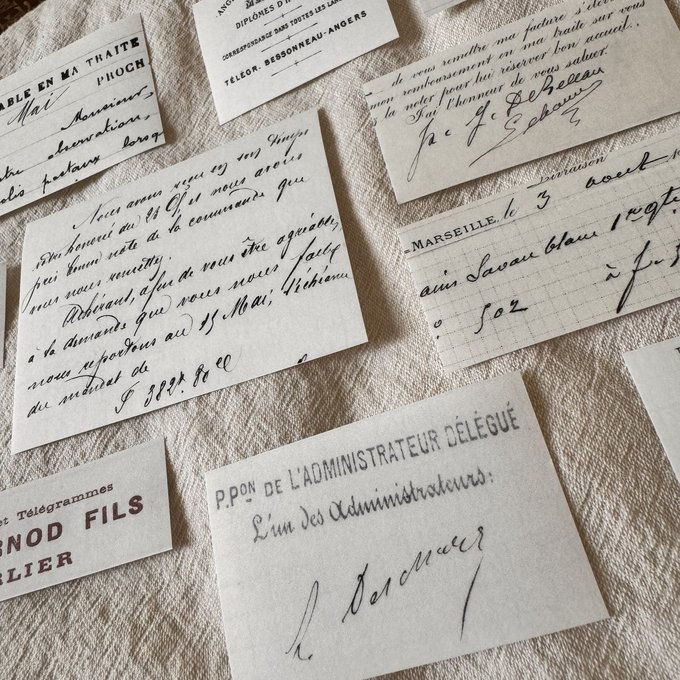 ABLE EN MA TRAITE
Mai PROCH
Monsieur,
observation,
postaux lorsq
DIPLÔMES D'H
CORRESPONDANCE DANS TOUTES LES LAN
TÉLÉGR. BESSONNEAU-ANGERS
de vous remettre ma facture s'élev
mon remboursement en ma traite sur vous
la noter pour lui réserver bon accueil.
J'ai l'honneur de vous saluer.
Nous avons reçu en son temps
votre honorée du 23 Ct, et nous avons
pris bonne note de la commande que
vous nous remettez.
Adhérant, afin de vous être agréable,
à la demande que vous nous faites
nous reportons au 15 Mai, l'échéance
du mandat de
F 382
Livraison
MARSEILLE, le 3 août
Savon blanc 1re qte
502 à f
et Télégrammes
RNOD FILS
RLIER
P.PON DE L'ADMINISTRATEUR DÉLÉGUÉ
L'un des Administrateurs: